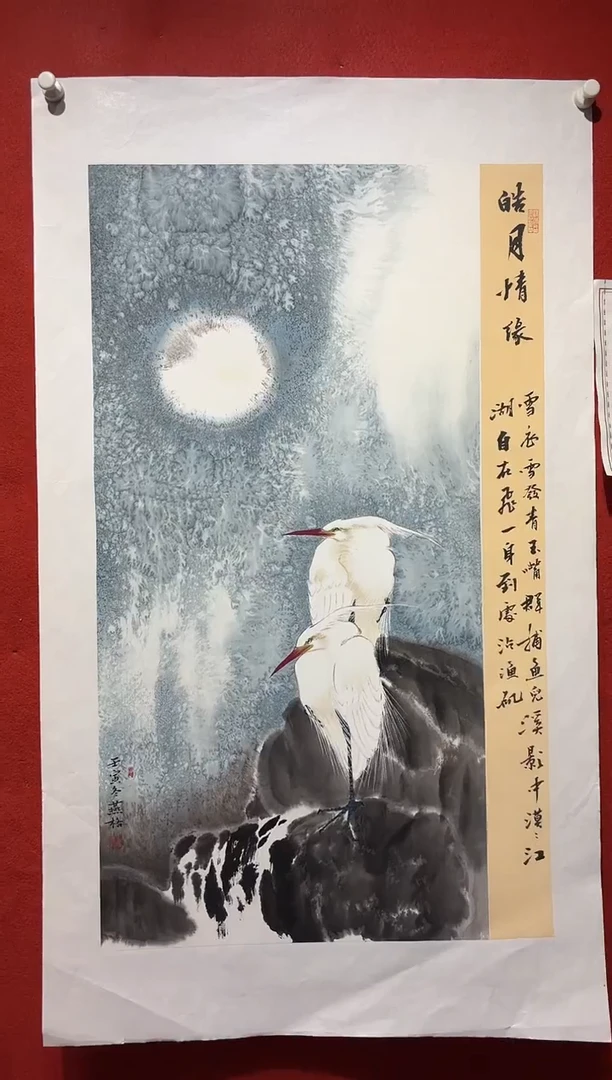 皓月情缘
雪衣雪发青玉嘴群捕鱼儿溪影中漠漠江
湖自在飛一身到處沾漁矶
壬寅冬燕